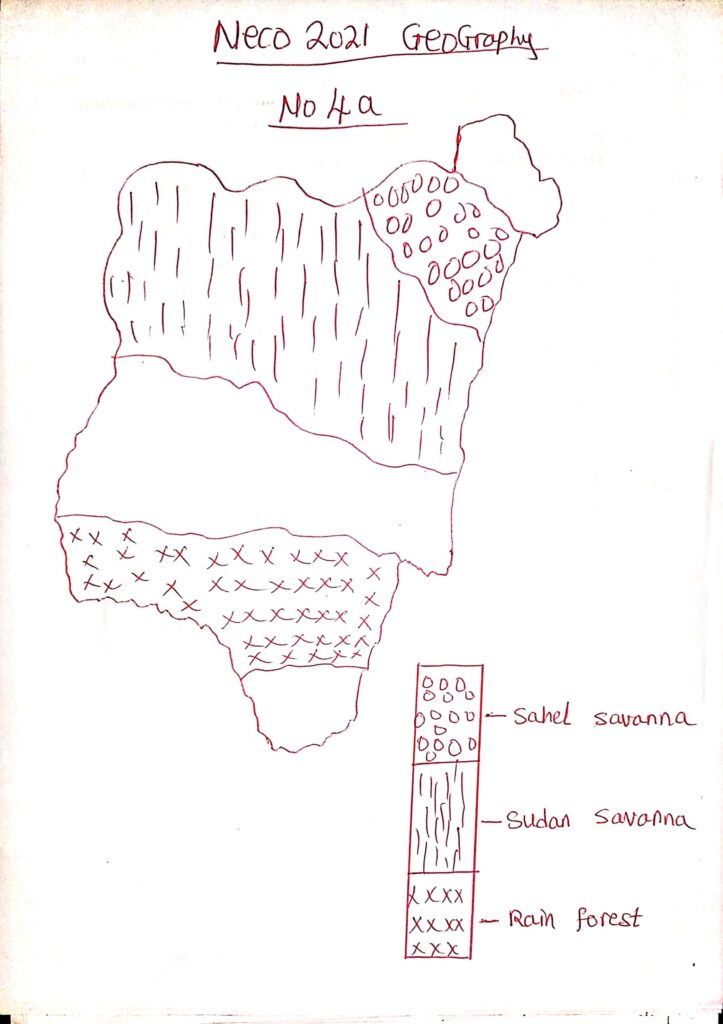 Neco 2021 Geography
No 4a
Sahel savanna
Sudan savanna
Rain forest